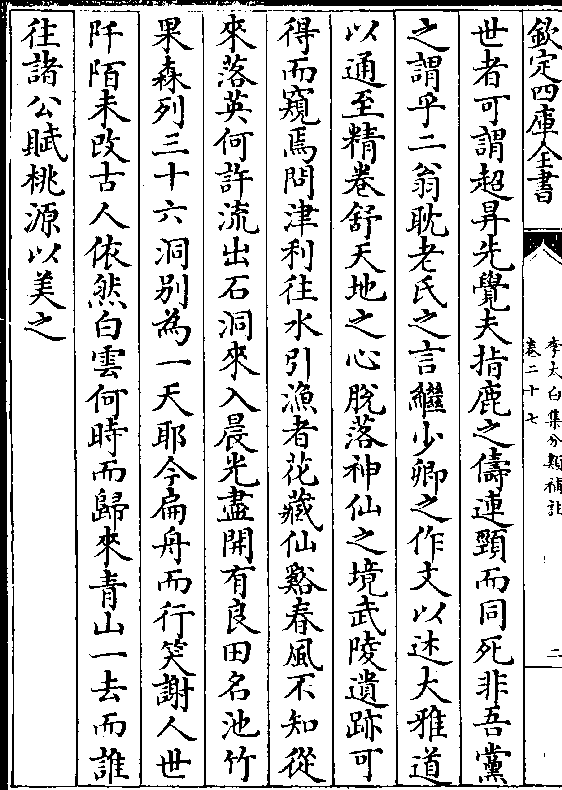 欽定四庫全書
李太白集分類補註
卷二十七
二
世者可謂超昇先覺夫指鹿之儔連頸而同死非吾黨
之謂乎二翁耽老氏之言繼少卿之作文以述大雅道
以通至精卷舒天地之心脫落神仙之境武陵遺跡可
得而窺焉問津利往水引漁者花藏仙谿春風不知從
來落英何許流出石洞來入晨光盡開有良田名池竹
果森列三十六洞別為一天耶今扁舟而行笑謝人世
阡陌未改古人依然白雲何時而歸來青山一去而誰
往諸公賦桃源以美之